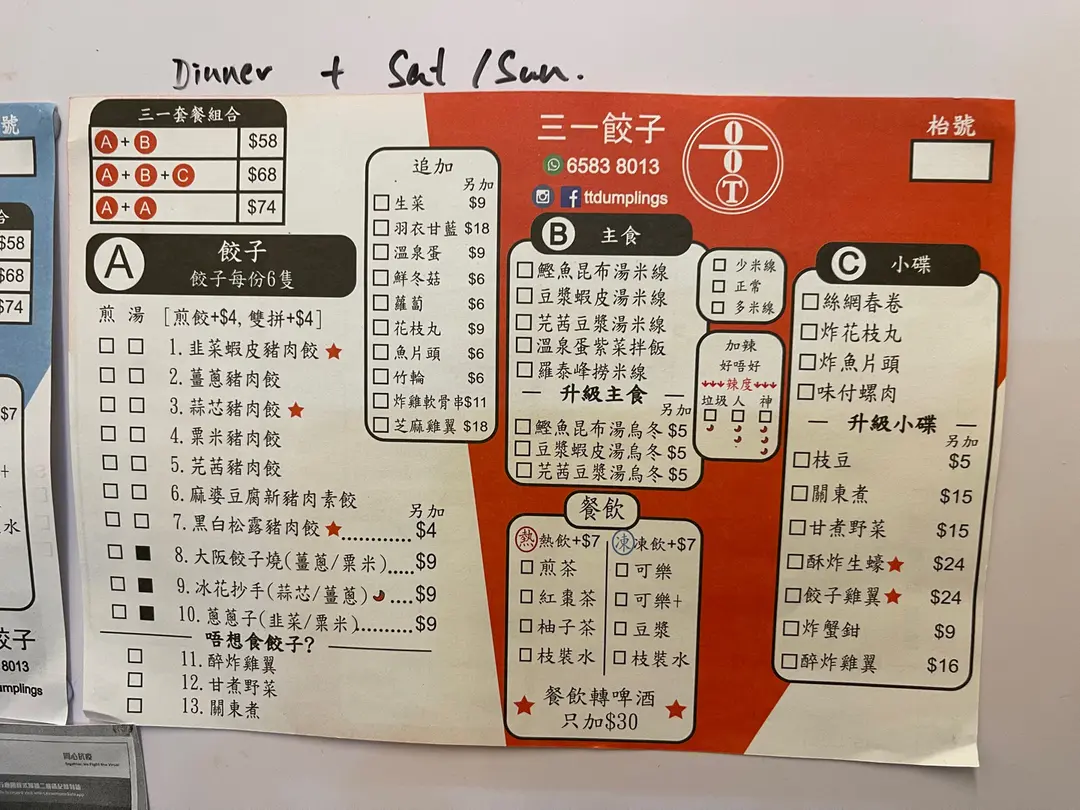 Dinner + Sat / Sun.
號
合
$58
$68
$74
$7
水
餃子
8013
umplings
同心抗疫
三一套餐組合
A + B $58
A + B + C $68
A + A $74
A 餃子
餃子每份6隻
煎 湯 [煎餃+$4, 雙拼+$4]
1. 韭菜蝦皮豬肉餃
2. 薑蔥豬肉餃
3. 蒜芯豬肉餃
4. 粟米豬肉餃
5. 芫茜豬肉餃
6. 麻婆豆腐新豬肉素餃
另加
7. 黑白松露豬肉餃............$4
8. 大阪餃子燒(薑蔥/粟米).....$9
9. 冰花抄手(蒜芯/薑蔥) ....$9
10. 蔥蔥子(韭菜/粟米)..........$9
唔想食餃子?
11. 醉炸雞翼
12. 甘煮野菜
13. 關東煮
追加
另加
生菜 $9
羽衣甘藍 $18
溫泉蛋 $9
鮮冬菇 $6
蘿蔔 $6
花枝丸 $9
魚片頭 $6
竹輪 $6
炸雞軟骨串$11
芝麻雞翼 $18
三一餃子
6583 8013
ttdumplings
OOT
枱號
B 主食
鰹魚昆布湯米線
豆漿蝦皮湯米線
芫茜豆漿湯米線
溫泉蛋紫菜拌飯
羅泰峰撈米線
升級主食
另加
鰹魚昆布湯烏冬 $5
豆漿蝦皮湯烏冬 $5
芫茜豆漿湯烏冬 $5
少米線
正常
多米線
加辣
好唔好
辣度
垃圾 人 神
餐飲
熱 熱飲+$7
煎茶
紅棗茶
柚子茶
枝裝水
凍 凍飲+$7
可樂
可樂+
豆漿
枝裝水
餐飲轉啤酒
只加$30
C 小碟
絲網春卷
炸花枝丸
炸魚片頭
味付螺肉
升級小碟
另加
枝豆 $5
關東煮 $15
甘煮野菜 $15
酥炸生蠔 $24
餃子雞翼 $24
炸蟹鉗 $9
醉炸雞翼 $16